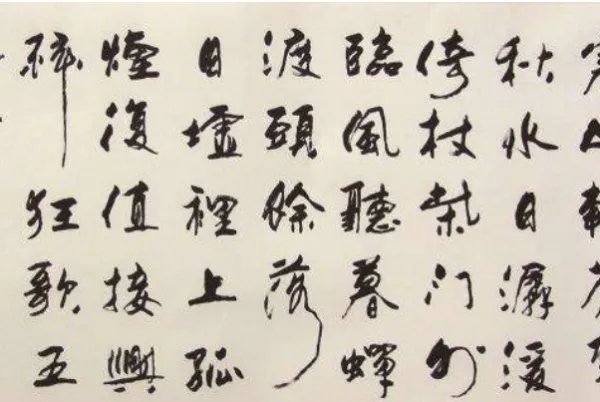 秋水日潺湲
倚杖柴門外
臨風聽暮蟬
渡頭餘落
日墟裡上孤
煙復值接輿
醉狂歌五